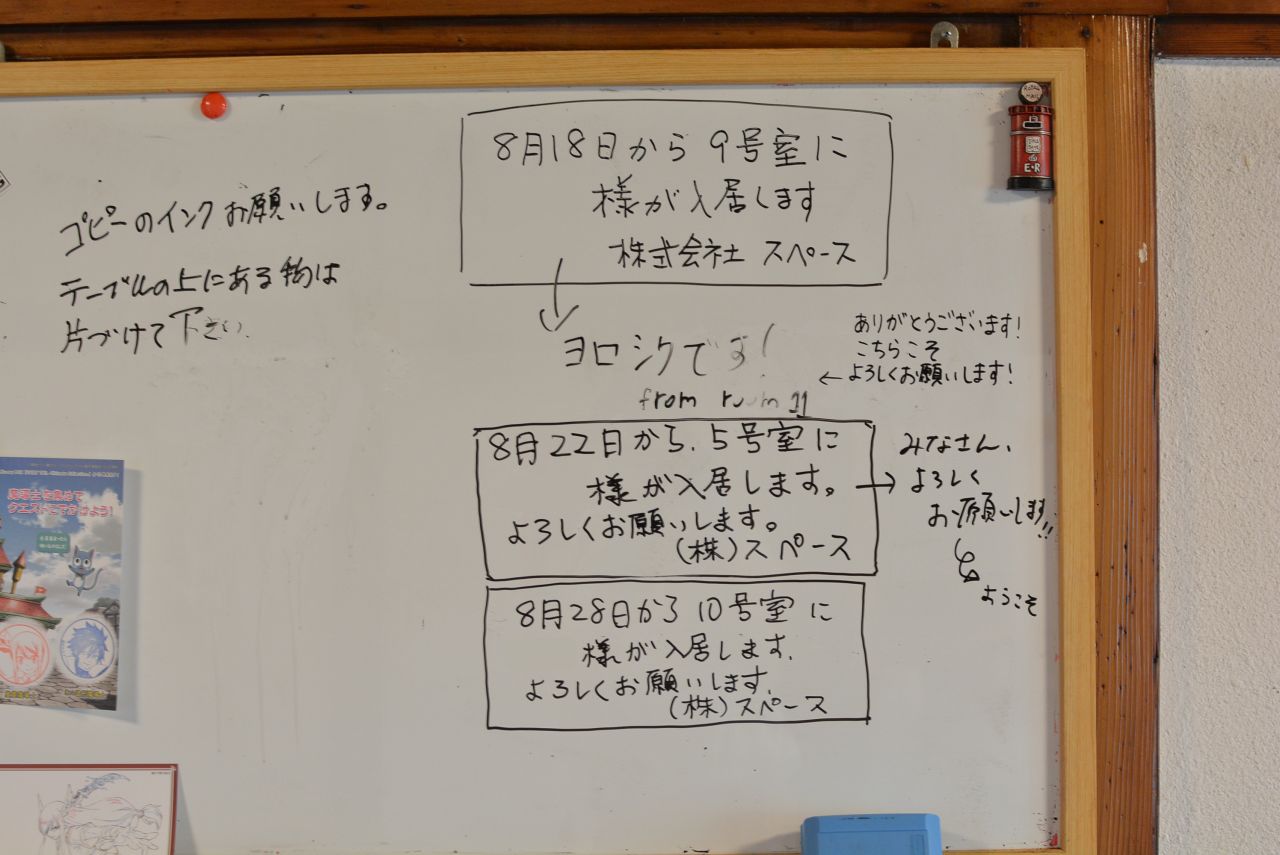 コピーのインクお願いします。
テーブルの上にある物は
片づけて下さい
8月18日から 9号室に
様が入居します
株式会社 スペース
ヨロシクです!
from room 11
ありがとうございます!
こちらこそ
よろしくお願いします!
8月22日から、5号室に
様が入居します。
よろしくお願いします。
(株)スペース
みなさん、
よろしく
お願いします!!
ようこそ
8月28日から 10号室に
様が入居します。
よろしくお願いします。
(株)スペース
ROYAL
MAIL
E・R
クエストにでかけよう!